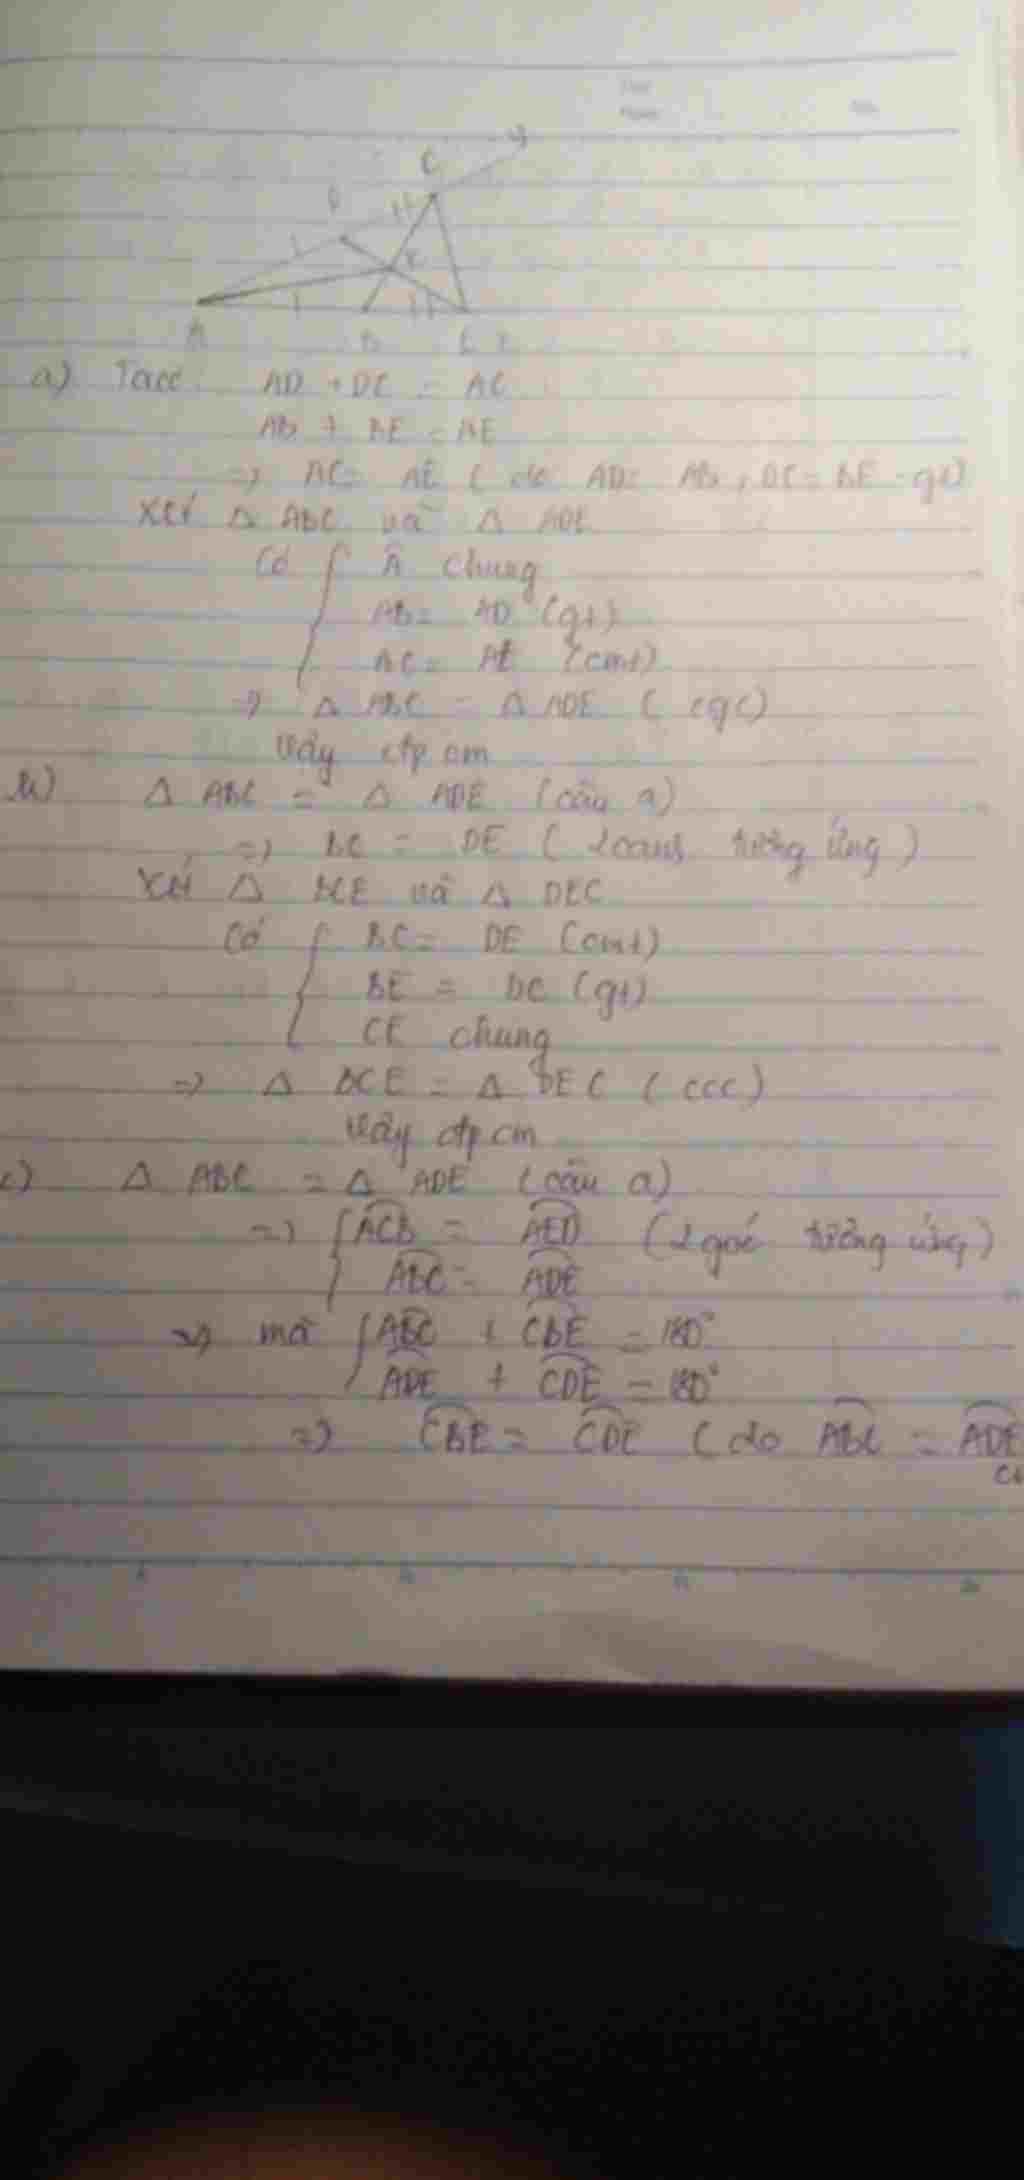 C
A
a) Ta có AD + DC = AC
AB + BE = AE
=> AC = AE ( do AD = AB , DC = BE - gt)
Xét Δ ABC và Δ ADE
Có { Â chung
AB = AD (gt)
AC = AE (cmt)
=> Δ ABC = Δ ADE ( cgc)
Vậy đpcm
b) Δ ABC = Δ ADE (câu a)
=> BC = DE ( 2 cạnh tương ứng )
Xét Δ BCE và Δ DEC
Có { BC = DE (cmt)
BE = DC (gt)
CE chung
=> Δ BCE = Δ DEC ( ccc)
Vậy đpcm
c) Δ ABC = Δ ADE (câu a)
=> { ACB = AED (2 góc tương ứng)
ABC = ADE
=> mà { ABC + CBE = 180°
ADE + CDE = 180°
=> CBE = CDE ( do ABC = ADE